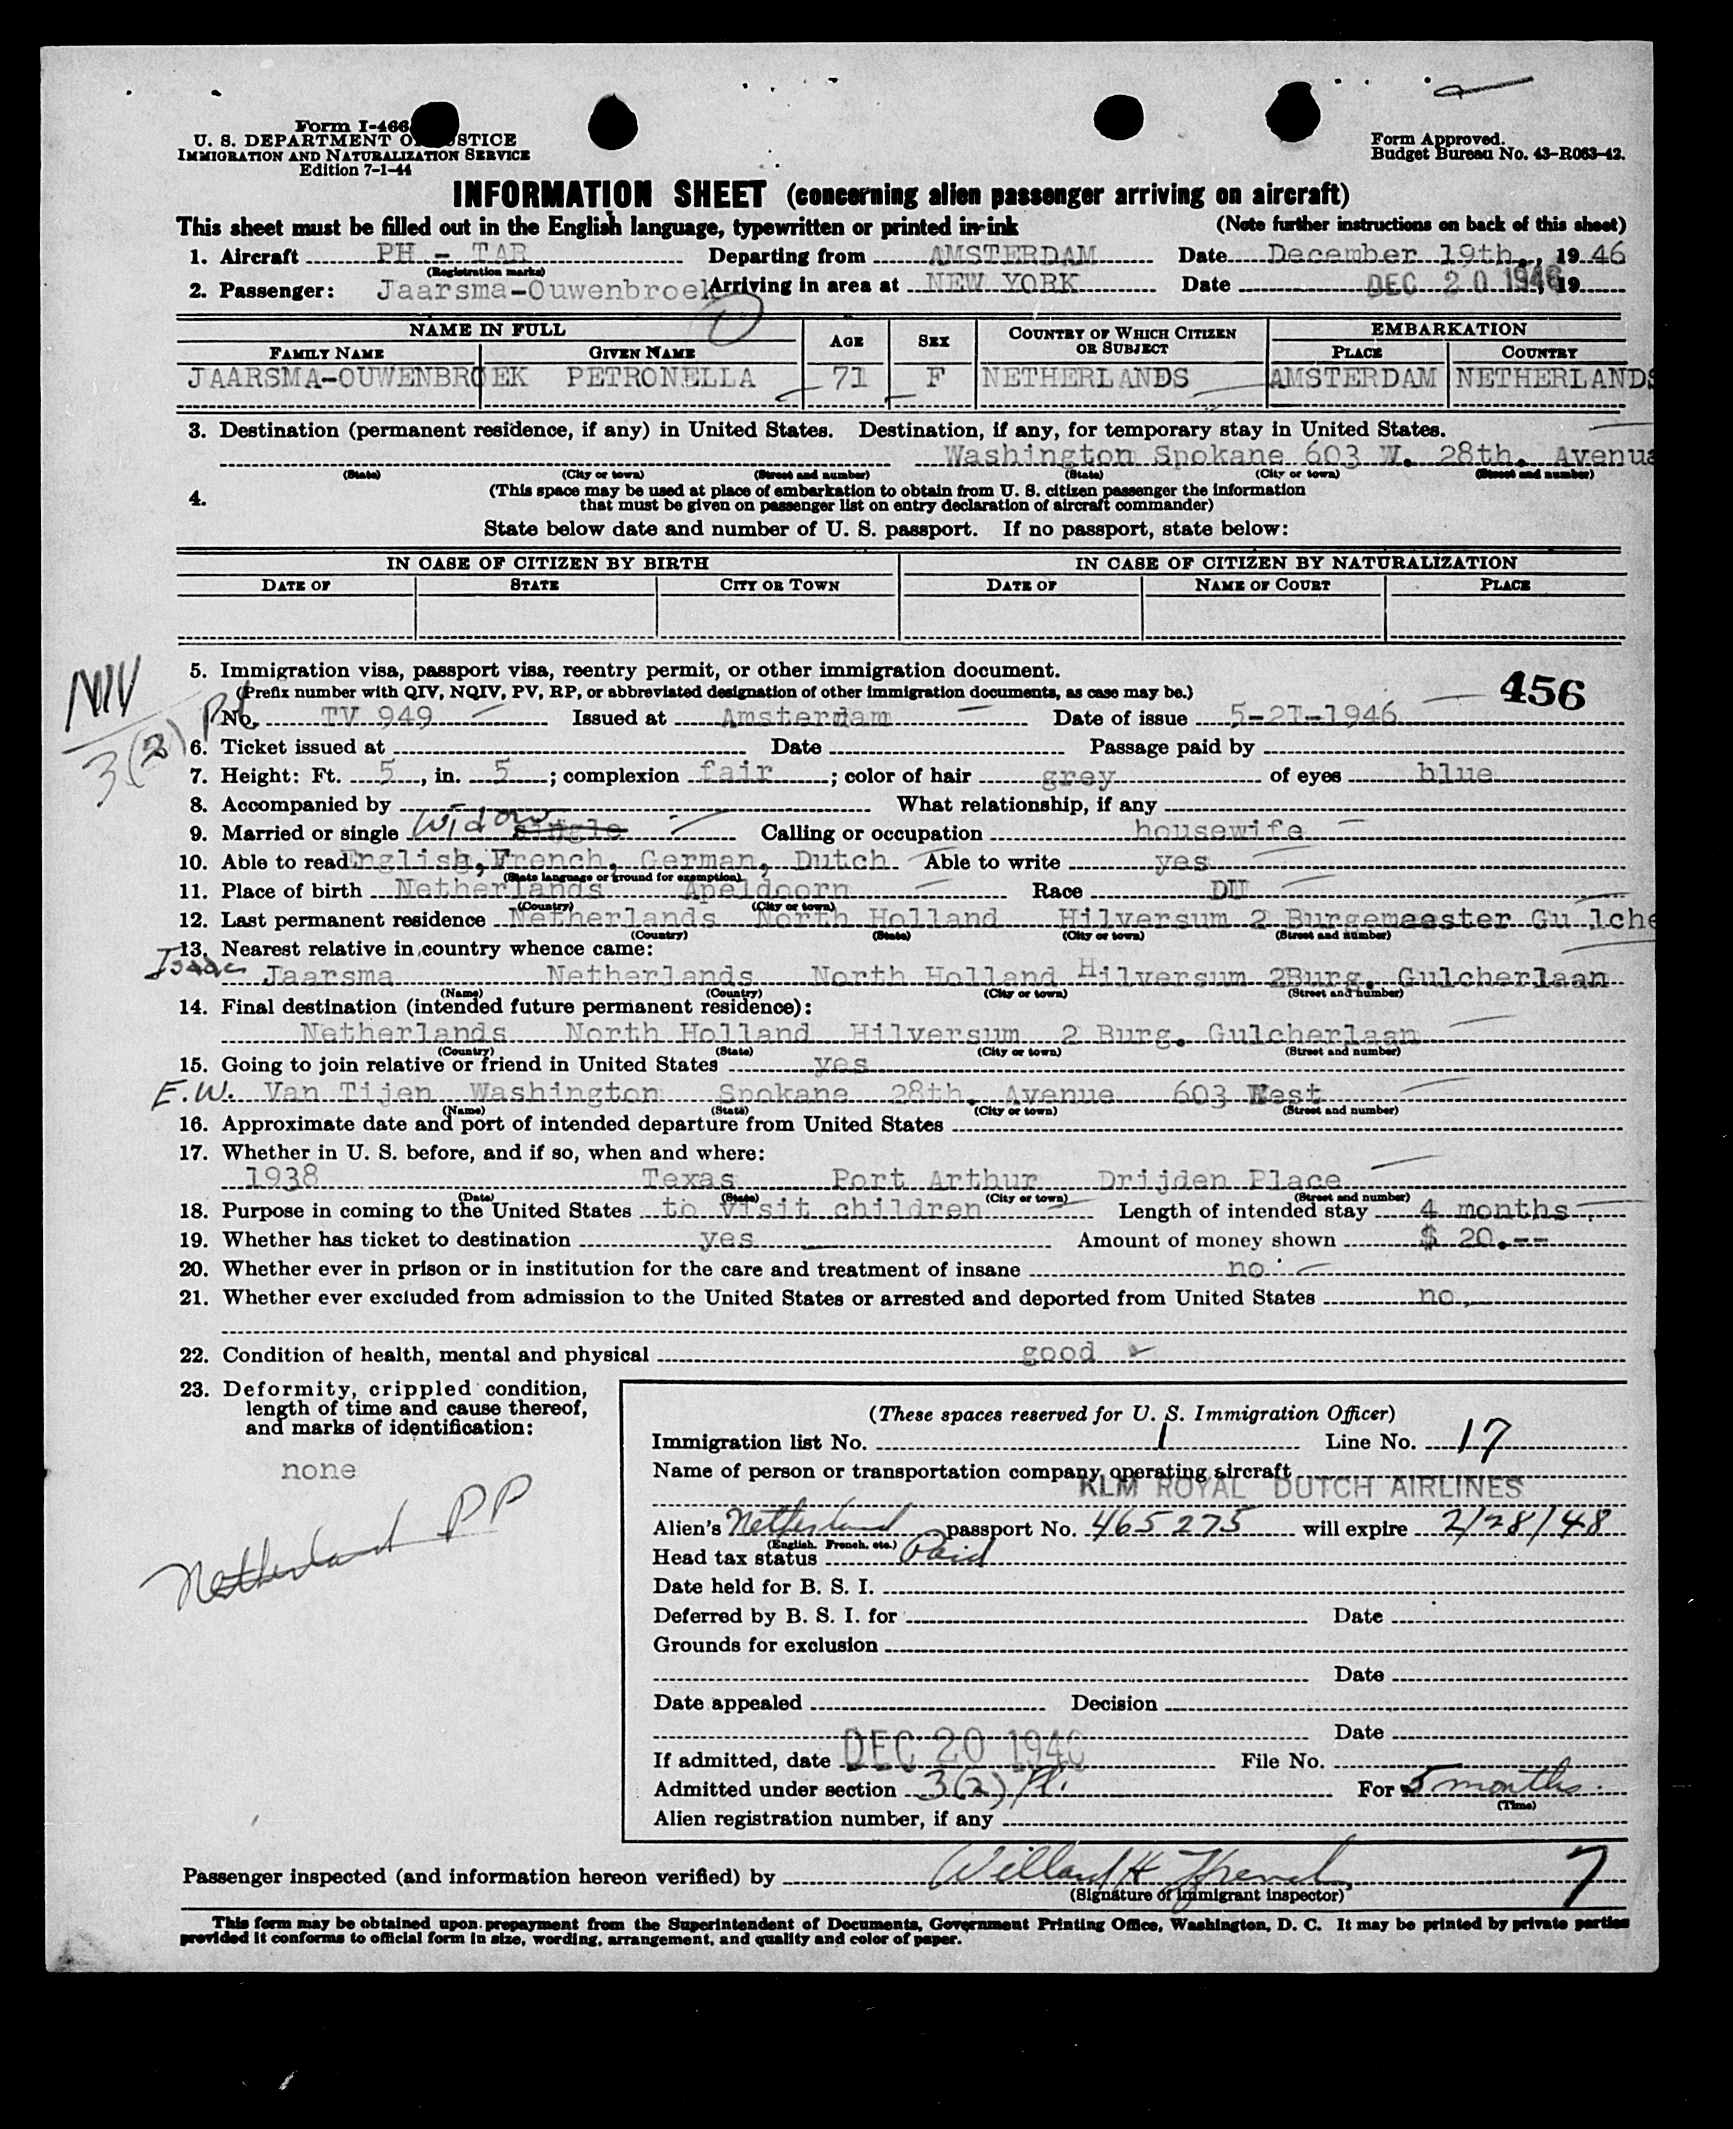 Form I-466
U. S. DEPARTMENT OF JUSTICE
IMMIGRATION AND NATURALIZATION SERVICE
Edition 7-1-44
Form Approved.
Budget Bureau No. 43-R063-42.
INFORMATION SHEET (concerning alien passenger arriving on aircraft)
This sheet must be filled out in the English language, typewritten or printed in ink (Note further instructions on back of this sheet)
1. Aircraft PH - TAR Departing from AMSTERDAM Date December 19th., 19 46
(Registration marks)
2. Passenger: Jaarsma-Ouwenbroek Arriving in area at NEW YORK Date DEC 20 1946 19
NAME IN FULL AGE SEX COUNTRY OF WHICH CITIZEN OR SUBJECT EMBARKATION
FAMILY NAME GIVEN NAME PLACE COUNTRY
JAARSMA-OUWENBROEK PETRONELLA 71 F NETHERLANDS AMSTERDAM NETHERLANDS
3. Destination (permanent residence, if any) in United States. Destination, if any, for temporary stay in United States.
Washington Spokane 603 W. 28th. Avenue
(State) (City or town) (Street and number) (State) (City or town) (Street and number)
4. (This space may be used at place of embarkation to obtain from U. S. citizen passenger the information
that must be given on passenger list on entry declaration of aircraft commander)
State below date and number of U. S. passport. If no passport, state below:
IN CASE OF CITIZEN BY BIRTH IN CASE OF CITIZEN BY NATURALIZATION
DATE OF STATE CITY OR TOWN DATE OF NAME OF COURT PLACE
NIV
3(2) Pl
5. Immigration visa, passport visa, reentry permit, or other immigration document.
(Prefix number with QIV, NQIV, PV, RP, or abbreviated designation of other immigration documents, as case may be.) 456
No. TV 949 Issued at Amsterdam Date of issue 5-2I-1946
6. Ticket issued at Date Passage paid by
7. Height: Ft. 5, in. 5; complexion fair; color of hair grey of eyes blue
8. Accompanied by What relationship, if any
9. Married or single Widow single Calling or occupation housewife
10. Able to read English, French, German, Dutch Able to write yes
(State language or ground for exemption)
11. Place of birth Netherlands Apeldoorn Race DU
(Country) (City or town)
12. Last permanent residence Netherlands North Holland Hilversum 2 Burgemeester Gu lche
(Country) (State) (City or town) (Street and number)
13. Nearest relative in country whence came:
Isaac Jaarsma Netherlands North Holland Hilversum 2Burg. Gulcherlaan
(Name) (Country) (City or town) (Street and number)
14. Final destination (intended future permanent residence):
Netherlands North Holland Hilversum 2 Burg. Gulcherlaan
(Country) (State) (City or town) (Street and number)
15. Going to join relative or friend in United States yes
E.W. Van Tijen Washington Spokane 28th. Avenue 603 West
(Name) (State) (City or town) (Street and number)
16. Approximate date and port of intended departure from United States
17. Whether in U. S. before, and if so, when and where:
1938 Texas Port Arthur Drijden Place
(Date) (State) (City or town) (Street and number)
18. Purpose in coming to the United States to visit children Length of intended stay 4 months
19. Whether has ticket to destination yes Amount of money shown $ 20.--
20. Whether ever in prison or in institution for the care and treatment of insane no
21. Whether ever excluded from admission to the United States or arrested and deported from United States no
22. Condition of health, mental and physical good
23. Deformity, crippled condition,
length of time and cause thereof,
and marks of identification:
none
Netherland PP
(These spaces reserved for U. S. Immigration Officer)
Immigration list No. 1 Line No. 17
Name of person or transportation company operating aircraft
KLM ROYAL DUTCH AIRLINES
Alien's Netherland passport No. 465275 will expire 2/28/48
(English, French, etc.)
Head tax status Paid
Date held for B. S. I.
Deferred by B. S. I. for Date
Grounds for exclusion
Date
Date appealed Decision
Date
If admitted, date DEC 20 1946 File No.
Admitted under section 3(2) Pl. For 5 months
(Time)
Alien registration number, if any
Passenger inspected (and information hereon verified) by Willard H 7
(Signature of immigrant inspector)
This form may be obtained upon prepayment from the Superintendent of Documents, Government Printing Office, Washington, D. C. It may be printed by private parties
provided it conforms to official form in size, wording, arrangement, and quality and color of paper.